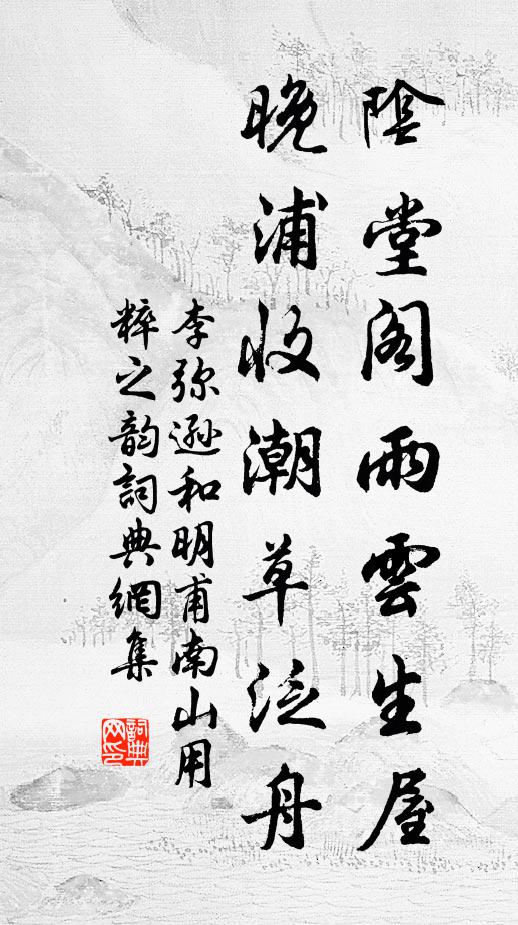 陰堂閣雨雲生屋
晚浦收潮草泛舟
李弥遜和明甫南山用
粹之韵詞典網集
詞典网印